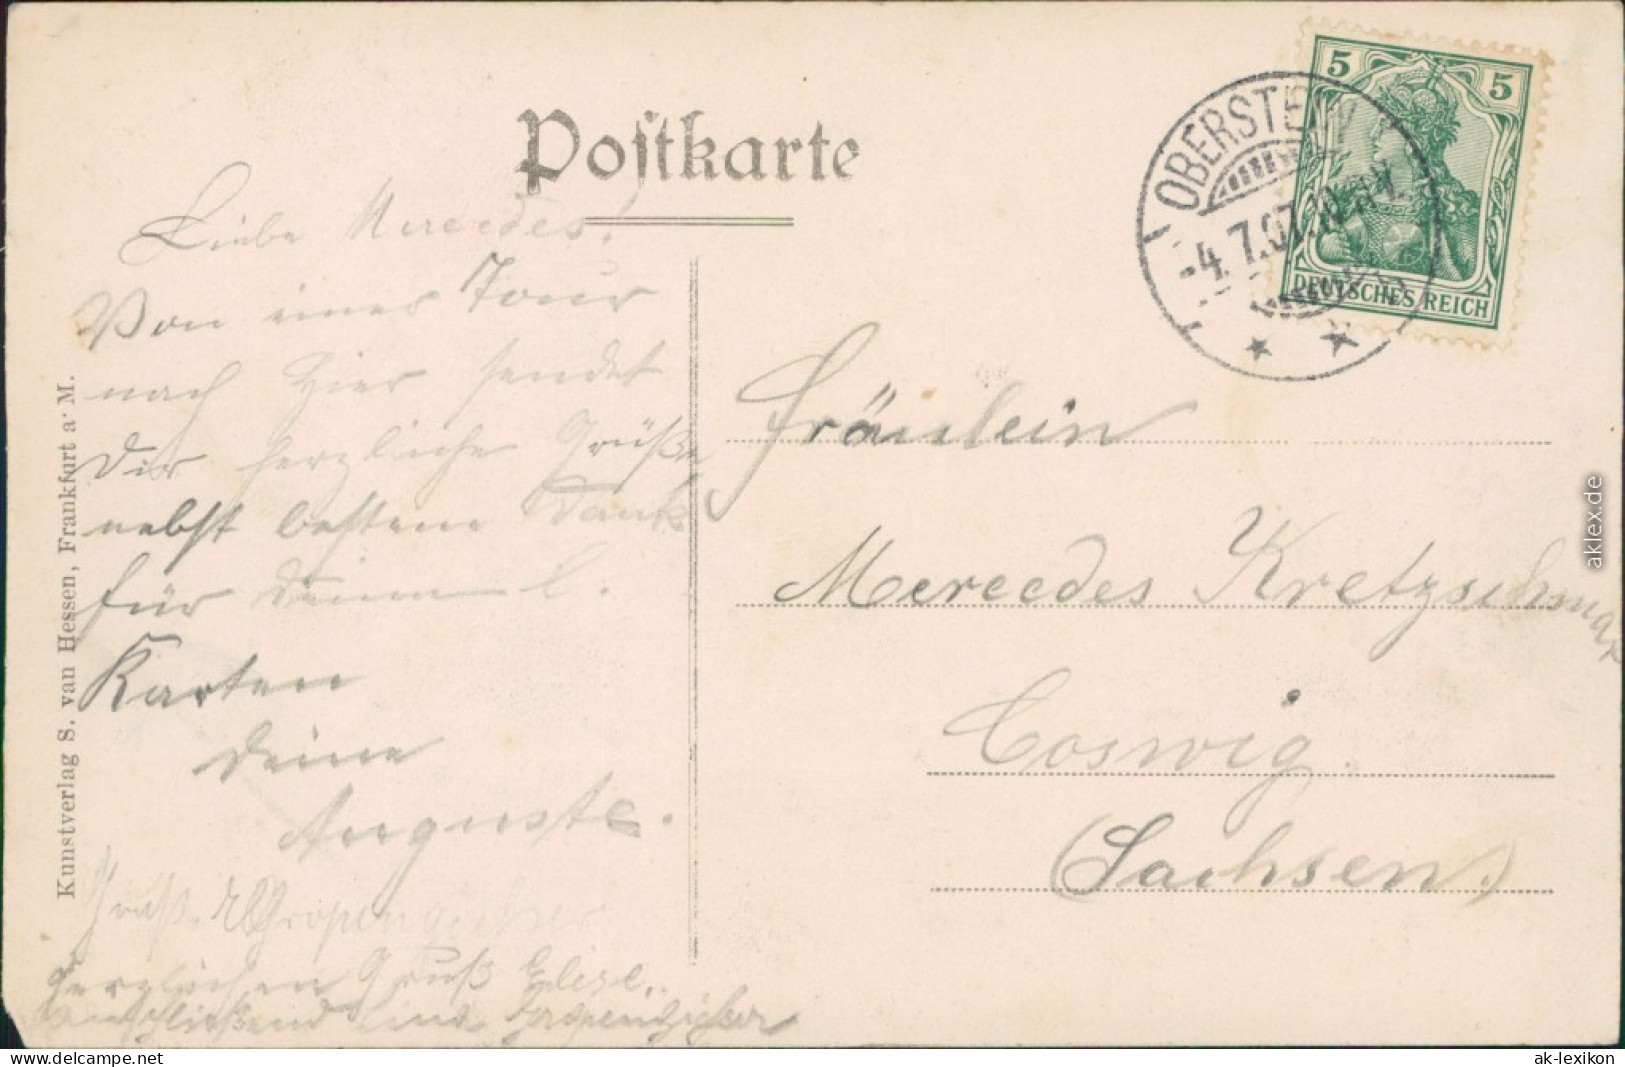 Postkarte
OBERSTEIN
-4.7.07.10-11V.
5 5
DEUTSCHES REICH
Liebe Mercedes!
Von einer Tour
nach hier sendet
Dir herzliche Grüße
nebst bestem Dank
für Deine l.
Karten
Deine
Auguste.
Gruß
herzlichen Gruß Elise
Fräulein
Mercedes Kretzschmar
Coswig.
(Sachsen.)
Kunstverlag S. van Hessen, Frankfurt a. M.
aklex.de
www.delcampe.net
ak-lexikon